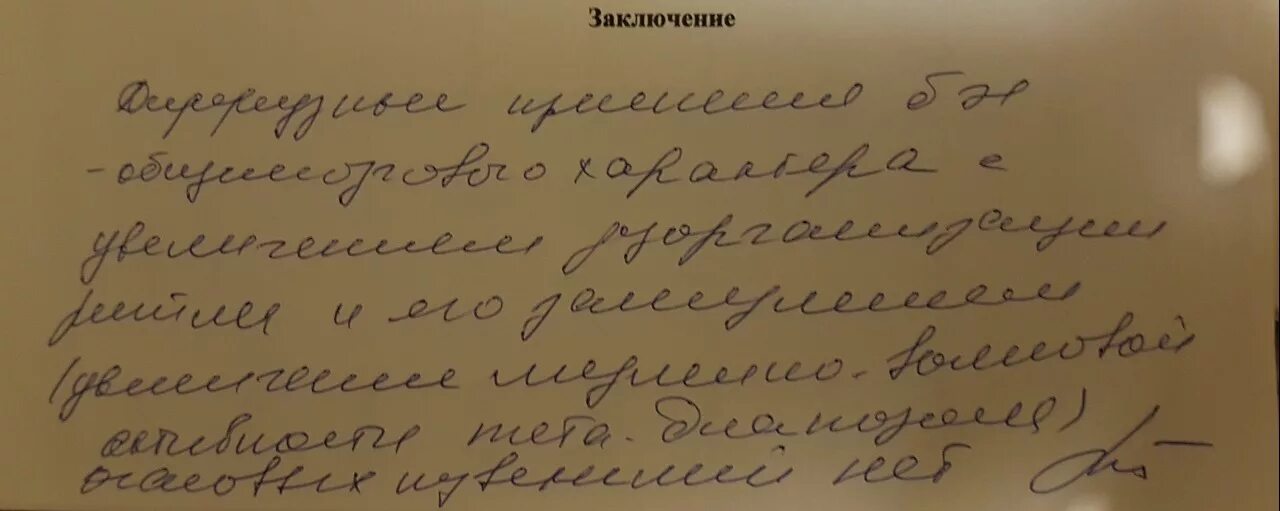 Заключение
Диффузные изменения бэа
- общемозгового характера с
увеличением дезорганизации
ритма и его замедлением
(увеличение медленно-волновой
активности тета-диапазона)
очаговых изменений нет